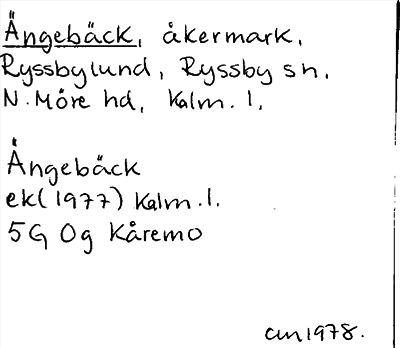 Ängebäck, åkermark,
Ryssbylund, Ryssby sn,
N. Möre hd, Kalm. l.
Ängebäck
ek (1977) Kalm. l.
5G Og Kåremo
am 1978.